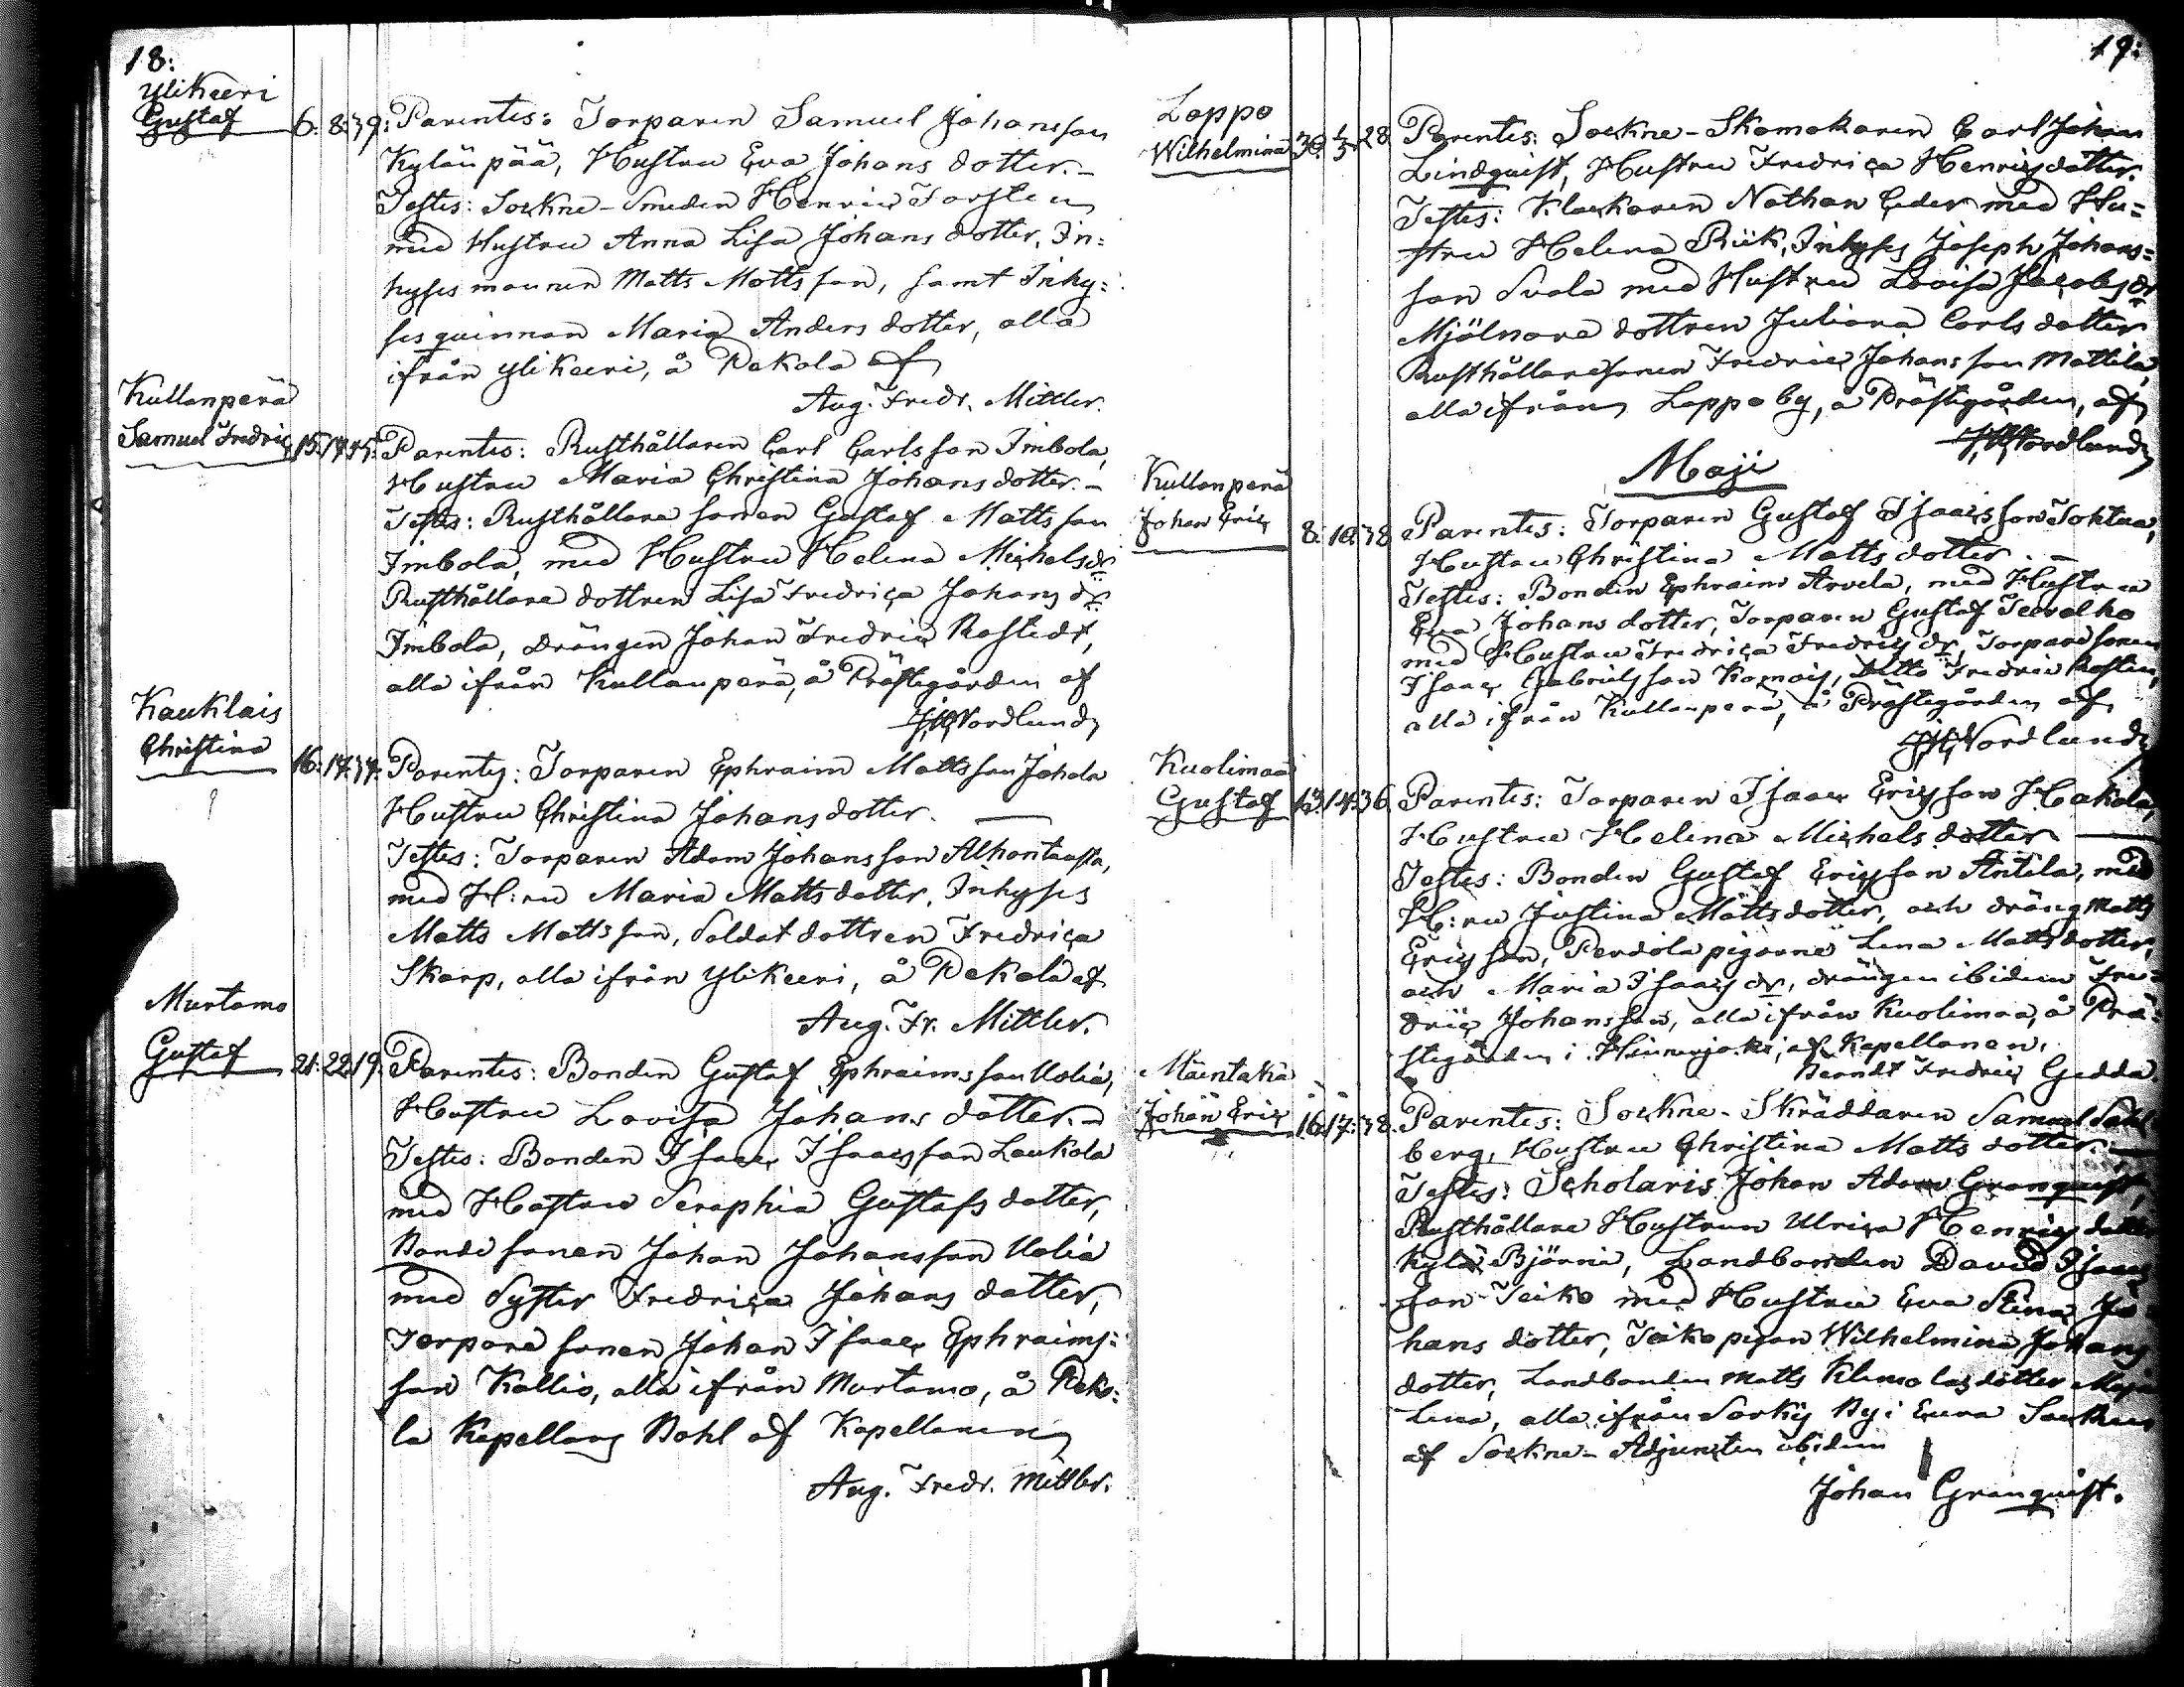 18:
Ylikeeri
Gustaf 6: 8: 39: Parentes: Torparen Samuel Johansson
Kylänpää, Hustru Eva Johans dotter. –
Testes: Sockne-Smeden Henric Torsten
med Hustru Anna Lisa Johans dotter, In=
hyses mannen Matts Mattsson, samt Inhy=
ses quinnan Maria Anders dotter, alla
ifrån Ylikeeri, å Pekola af
Aug. Fredr. Mittler.
Kullanperä
Samuel Fredric 15: 17: Parentes: Rusthållaren Carl Carlsson Imbola,
Hustru Maria Christina Johansdotter. –
Testes: Rusthållare sonen Gustaf Mattsson
Imbola, med Hustru Helena Michelsdr
Rusthållare dottren Lisa Fredrica Johansdr
Imbola, drängen Johan Fredric Rostedt,
alla ifrån Kullanperä, å Prästegården af
Nordlund
Kauklais
Christina 16: 17: 37: Parentes: Torparen Ephraim Mattsson Johola
Hustru Christina Johansdotter. —
Testes: Torparen Adam Johansson Alhontausta,
med H:ru Maria Matts dotter, Inhyses
Matts Mattsson, Soldat dottren Fredrica
Skarp, alla ifrån Ylikeeri, å Pekola af
Aug. Fr. Mittler.
Murtamo
Gustaf 21: 22: 19: Parentes: Bonden Gustaf Ephraimsson Uolia,
Hustru Lovisa Johans dotter. –
Testes: Bonden Isaac Isaacsson Laukola
med Hustru Seraphia Gustafs dotter,
Bonde sonen Johan Johansson Uolia
med Syster Fredrica Johans dotter,
Torpare sonen Johan Isaac Ephraims=
son Kallio, alla ifrån Murtamo, å Peko=
la Kapellans Bohl af Kapellanen
Aug. Fredr. Mittler.
19:
Loppo
Wilhelmina 30. 1/5. 28 Parentes: Sockne-Skomakaren Carl Johan
Lindquist, Hustru Fredrica Henricsdotter.
Testes: Klockaren Nathan Ceder med Hu=
stru Helena Riik, Inhyses Joseph Johans=
son Svala med Hustru Lovisa Jacobsdr
Mjölnare dottren Juliana Carls dotter
Rusthållaresonen Fredric Johansson Mattila,
alla ifrån Loppo by, å Prästegården, af
Nordlund
Maji
Kullanperä
Johan Eric 8: 10: 38 Parentes: Torparen Gustaf Isaacsson Tohtua,
Hustru Christina Matts dotter. –
Testes: Bonden Ephraim Arvela, med Hustru
Eva Johans dotter, Torparen Gustaf Teevalko
med Hustru Fredrica Fredricsdr, Torparesonen
Isaac Gabrielsson Kamois, Ditto Fredric Rosten,
alla ifrån Kullanperä, å Prästegården af
Nordlund
Kuolimaa
Gustaf 13: 14: 36 Parentes: Torparen Isaac Ericsson Hakala,
Hustru Helena Michels dotter —
Testes: Bonden Gustaf Ericsson Antila, med
H:ru Justina Mattsdotter, och dräng Matts
Ericsson, Perdola pigorne Lena Mattsdotter,
och Maria Isaacsdr, drängen ibidem Fre=
dric Johansson, alla ifrån Kuolimaa, å Prä=
stegården i Hinnerjoki, af Kapellanen,
Berndt Fredric Gedda.
Mäentaka
Johan Eric 16: 17: 38. Parentes: Sockne-Skräddaren Samuel Sahl
berg, Hustru Christina Matts dotter. —
Testes: Scholaris Johan Adam Granquist,
Rusthållare Hustrun Ulrica Henrics dotter
Kylä Björni, Landbonden David Isaacs
son Teiko med Hustru Eva Stina Jo=
hans dotter, Teiko pigan Wilhelmina Johans
dotter, Landbonden Matts Klemolas dotter Maja
Lena, alla ifrån Sorky By i Eura Sockn
af Sockne-Adjuncten ibidem
Johan Granquist.